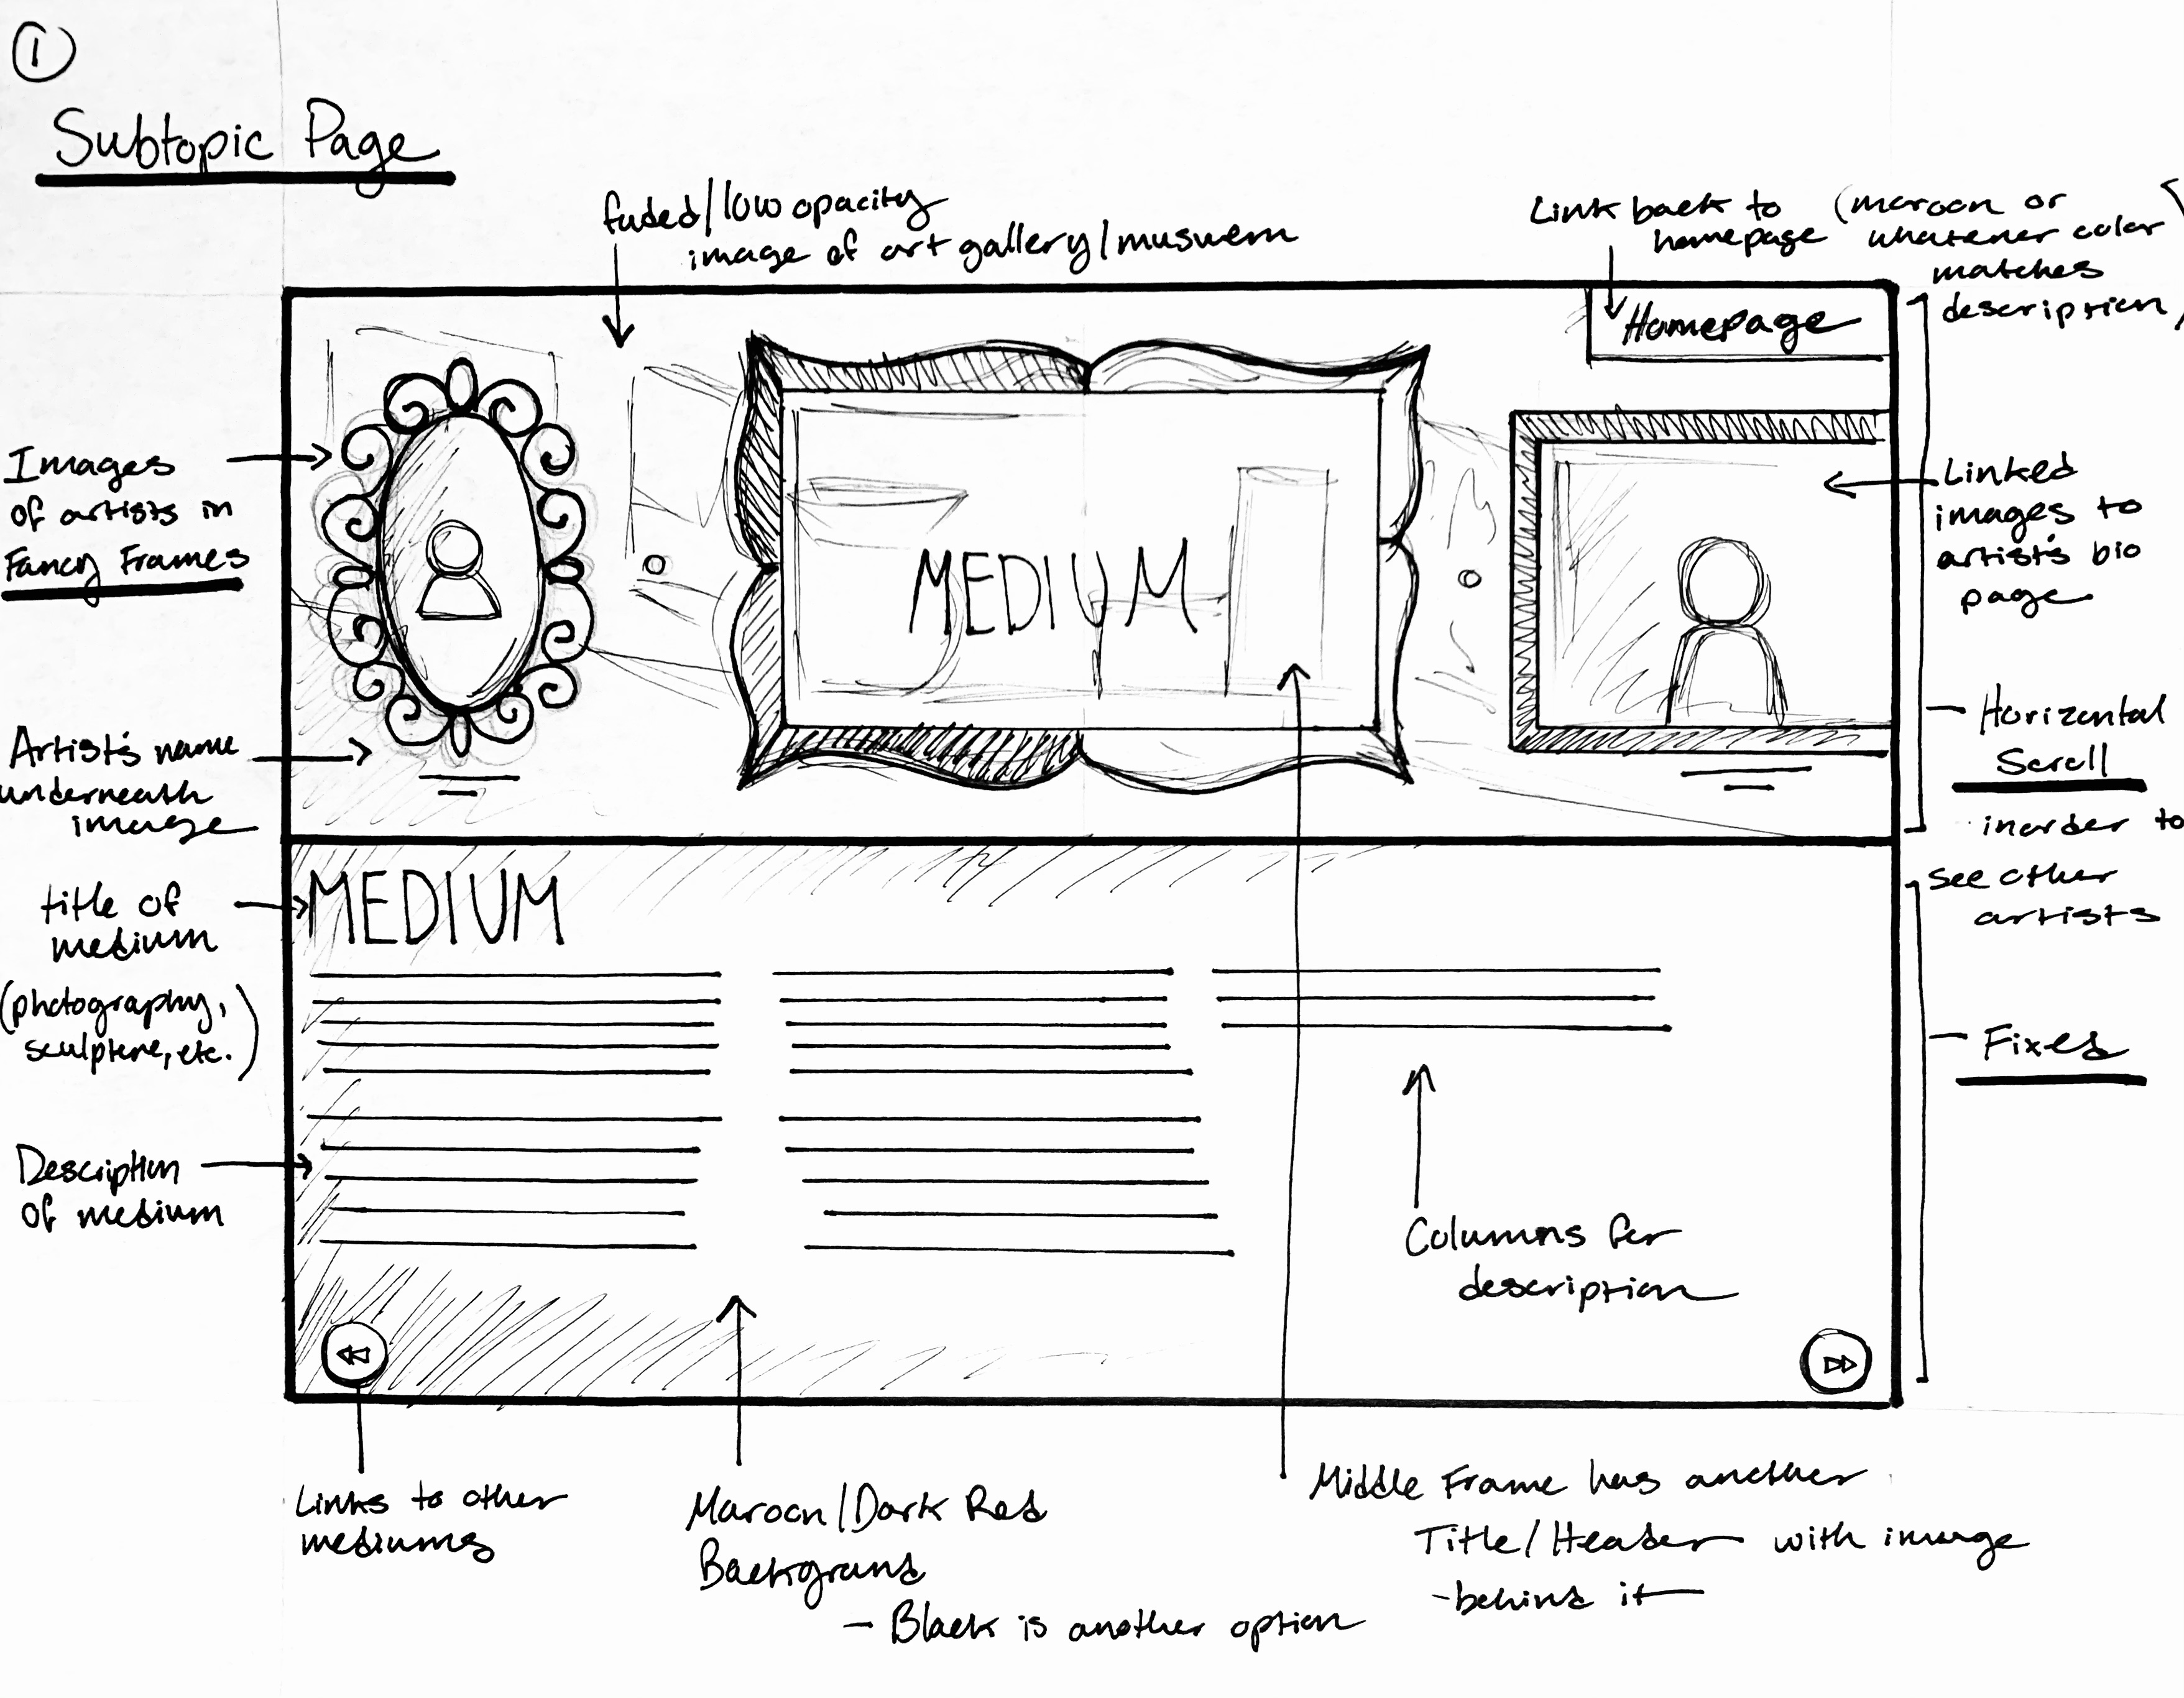 1
Subtopic Page
faded/low opacity
image of art gallery/museum
Link back to
homepage
(maroon or
whatever color
matches
description)
Homepage
Images
of artists in
Fancy Frames
MEDIUM
Linked
images to
artist's bio
page
Artist's name
underneath
image
Horizontal
Scroll
inorder to
see other
artists
title of
medium
(photography,
sculpture, etc.)
MEDIUM
Fixed
Description
of medium
Columns for
description
Links to other
mediums
Maroon/Dark Red
Background
- Black is another option
Middle Frame has another
Title/Header with image
-behind it